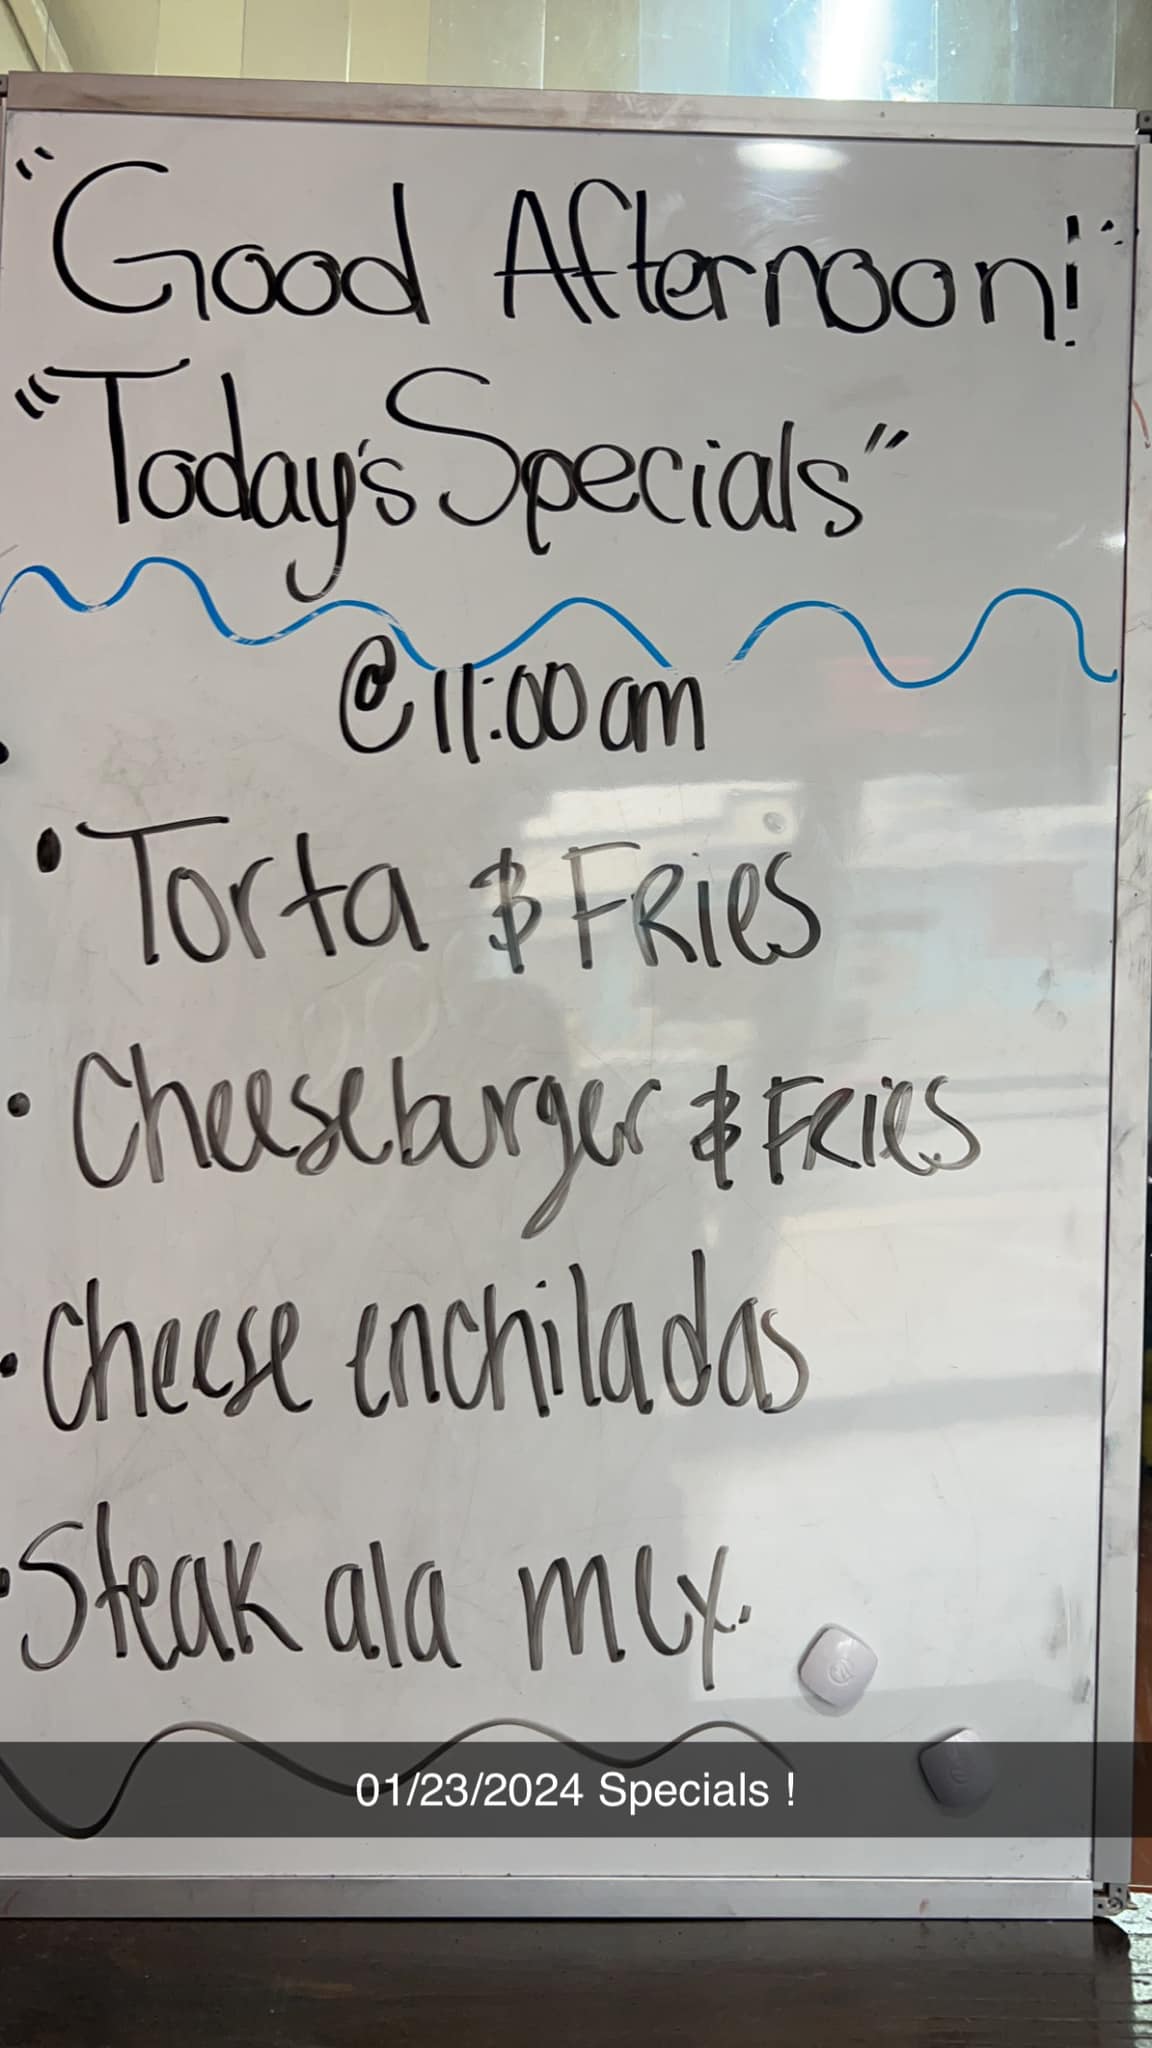 "Good Afternoon!"
"Today's Specials"
@11:00am
• Torta & Fries
• Cheeseburger & Fries
• Cheese enchiladas
• Steak ala mex.
01/23/2024 Specials !